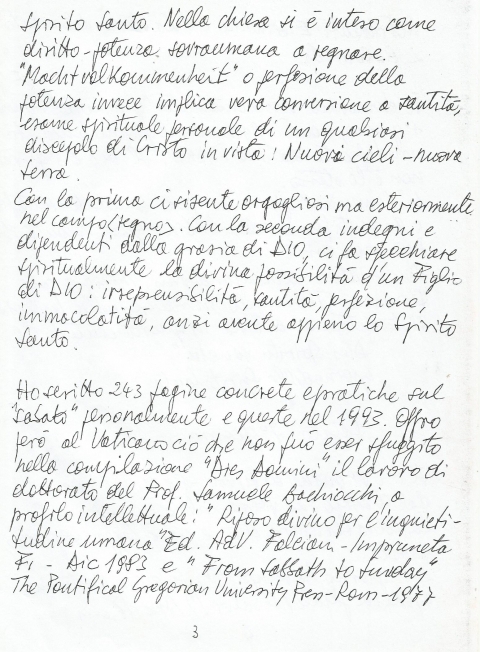 Spirito Santo. Nella chiesa si è inteso come
diritto-potenza sovraumana a regnare.
"Machtvollkommenheit" o perfezione della
potenza invece implica vera conversione a santità,
esame spirituale, personale di un qualsiasi
discepolo di Cristo in vista: Nuovi cieli - nuova
terra.
Con la prima ci si sente orgogliosi ma esteriormente
nel campo/regno. Con la seconda indegni e
dipendenti dalla grazia di DIO, ci fa specchiare
spiritualmente la divina possibilità d'un Figlio
di DIO: irreprensibilità, santità, perfezione,
immacolatità, anzi avente appieno lo Spirito
Santo.
Ho scritto 243 pagine concrete e pratiche sul
"sabato" personalmente e queste nel 1993. Offro
però al Vaticano ciò che non può esser sfuggito
nella compilazione "Dies Domini" il lavoro di
dottorato del Prof. Samuele Bachiocchi, a
profilo intellettuale: "Riposo divino per l'inquieti-
tudine umana" Ed. AdV. Falciani - Impruneta
Fi - Dic 1983 e "From Sabbath to Sunday"
The Pontifical Gregorian University Press - Rom - 1977
3